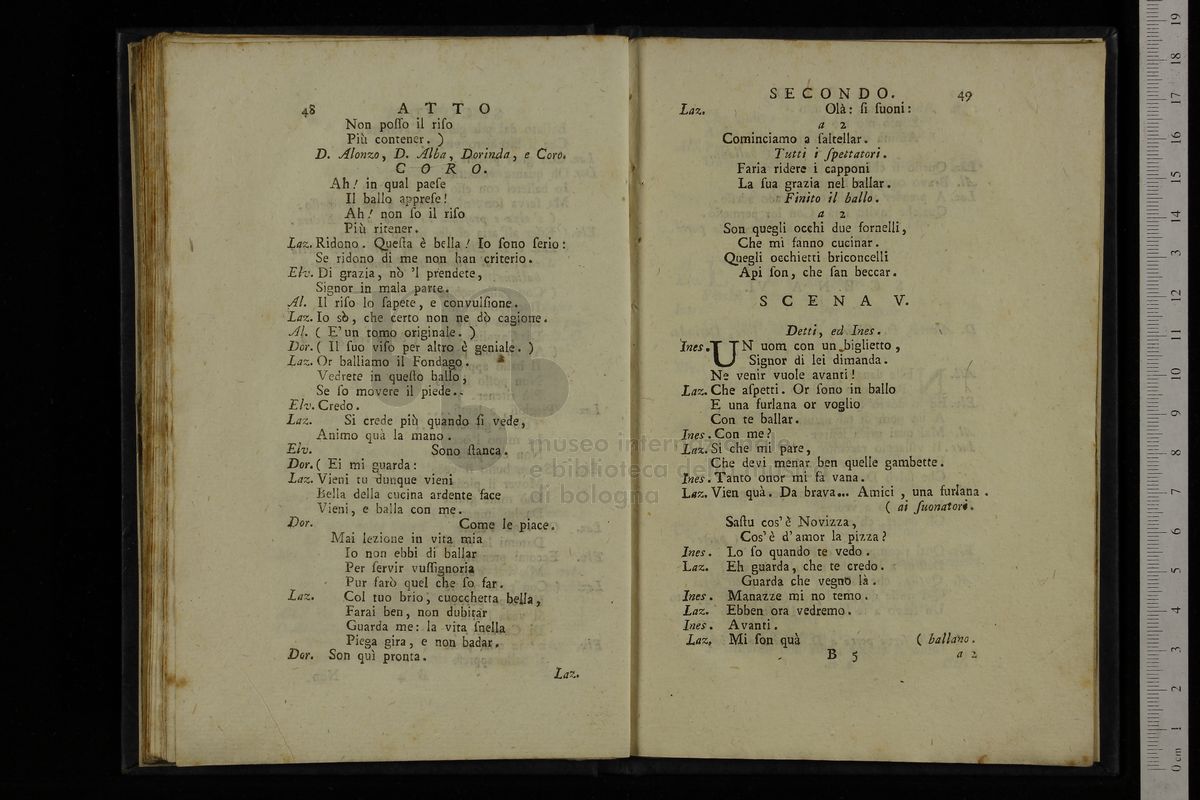 48 A T T O
Non poſſo il riſo
Più contener. )
D. Alonzo, D. Alba, Dorinda, e Coro.
C O R O.
Ah! in qual paeſe
Il ballo appreſe!
Ah! non ſo il riſo
Più ritener.
Laz. Ridono. Queſta è bella! Io ſono ſerio:
Se ridono di me non han criterio.
Elv. Di grazia, nò 'l prendete,
Signor in mala parte.
Al. Il riſo lo ſapete, e convulſione.
Laz. Io sò, che certo non ne dò cagione.
Al. ( E' un tomo originale. )
Dor. ( Il ſuo viſo per altro è geniale. )
Laz. Or balliamo il Fondago.
Vedrete in queſto ballo,
Se ſo movere il piede..
Elv. Credo.
Laz. Si crede più quando ſi vede,
Animo quà la mano.
Elv. Sono ſtanca.
Dor. ( Ei mi guarda:
Laz. Vieni tu dunque vieni
Bella della cucina ardente face
Vieni, e balla con me.
Dor. Come le piace.
Mai lezione in vita mia
Io non ebbi di ballar
Per ſervir vuſſignoria
Pur farò quel che ſo far.
Laz. Col tuo brio, cuocchetta bella,
Farai ben, non dubitar
Guarda me: la vita ſnella
Piega gira, e non badar.
Dor. Son quì pronta.
Laz.
SECONDO. 49
Laz. Olà: ſi ſuoni:
a 2
Cominciamo a ſaltellar.
Tutti i ſpettatori.
Faria ridere i capponi
La ſua grazia nel ballar.
Finito il ballo.
a 2
Son quegli occhi due fornelli,
Che mi fanno cucinar.
Quegli occhietti briconcelli
Api ſon, che fan beccar.
S C E N A V.
Detti, ed Ines.
Ines. UN uom con un biglietto,
Signor di lei dimanda.
Ne venir vuole avanti!
Laz. Che aſpetti. Or ſono in ballo
E una furlana or voglio
Con te ballar.
Ines. Con me?
Laz. Sì che mi pare,
Che devi menar ben quelle gambette.
Ines. Tanto onor mi fa vana.
Laz. Vien quà. Da brava... Amici, una furlana.
( ai ſuonatori.
Saſtu cos' è Novizza,
Cos' è d' amor la pizza?
Ines. Lo ſo quando te vedo.
Laz. Eh guarda, che te credo.
Guarda che vegno là.
Ines. Manazze mi no temo.
Laz. Ebben ora vedremo.
Ines. Avanti.
Laz. Mi ſon quà ( ballano.
B 5 a 2
museo internazionale
e biblioteca della musica
di bologna
0 cm 1 2 3 4 5 6 7 8 9 10 11 12 13 14 15 16 17 18 19